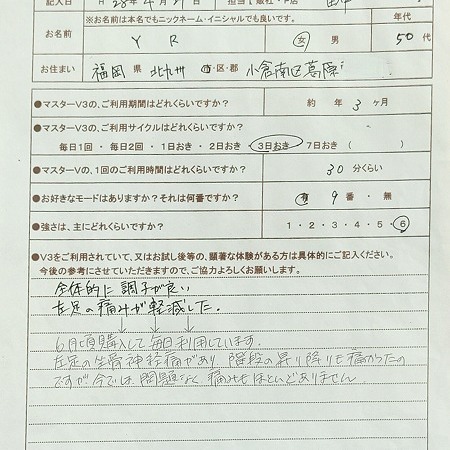 記入日 H 28年4月21日 担当【販社・P店
※お名前は本名でもニックネーム・イニシャルでも良いです。 年代
お名前 Y R 女・男 50代
お住まい 福岡県 北九州 市・区・郡 小倉南区葛原
●マスターV3の、ご利用期間はどれくらいですか？ 約 年 3ヶ月
●マスターV3の、ご利用サイクルはどれくらいですか？
毎日1回・毎日2回・1日おき・2日おき・3日おき・7日おき( )
●マスターVの、1回のご利用時間はどれくらいですか？ 30分くらい
●お好きなモードはありますか？それは何番ですか？ 有 9番・無
●強さは、主にどれくらいですか？ 1・2・3・4・5・6
●V3をご利用されていて、又はお試し後等の、顕著な体験がある方は具体的にご記入ください。
今後の参考にさせていただきますので、ご協力よろしくお願いします。
全体的に調子が良い
左足の痛みが軽減した.
↓ ↓ ↓
6月頃購入して毎日利用しています.
左足の坐骨神経痛があり 階段の昇り降りも痛かったの
ですが今では問題なく痛みもほとんどありません